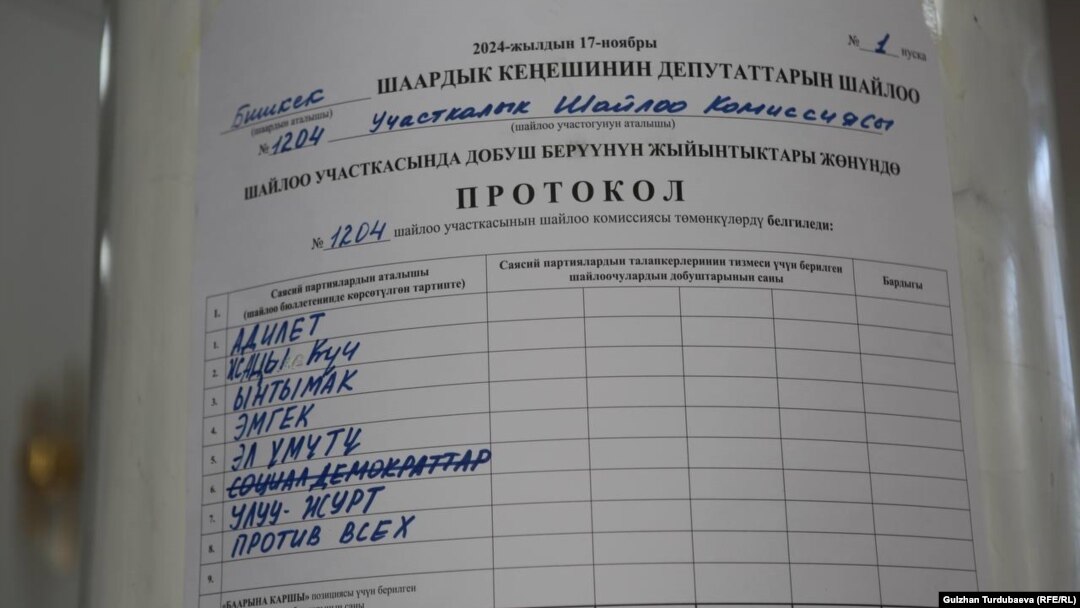 2024-жылдын 17-ноябры
№ 1 нуска
Бишкек ШААРДЫК КЕҢЕШИНИН ДЕПУТАТТАРЫН ШАЙЛОО
(шаардын аталышы)
№ 1204 Участкалык Шайлоо Комиссиясы
(шайлоо участогунун аталышы)
ШАЙЛОО УЧАСТКАСЫНДА ДОБУШ БЕРҮҮНҮН ЖЫЙЫНТЫКТАРЫ ЖӨНҮНДӨ
ПРОТОКОЛ
№ 1204 шайлоо участкасынын шайлоо комиссиясы төмөнкүлөрдү белгиледи:
1. Саясий партиялардын аталышы
(шайлоо бюллетенинде көрсөтүлгөн тартипте)
Саясий партиялардын талапкерлеринин тизмеси үчүн берилген
шайлоочулардын добуштарынын саны
Бардыгы
1. АДИЛЕТ
2. ЖАҢЫ Күч
3. ЫНТЫМАК
4. ЭМГЕК
5. ЭЛ ҮМҮТҮ
6. СОЦИАЛ ДЕМОКРАТТАР
7. УЛУУ-ЖУРТ
8. ПРОТИВ ВСЕХ
9.
«БААРЫНА КАРШЫ» позициясы үчүн берилген
добуштарынын саны
Gulzhan Turdubaeva (RFE/RL)